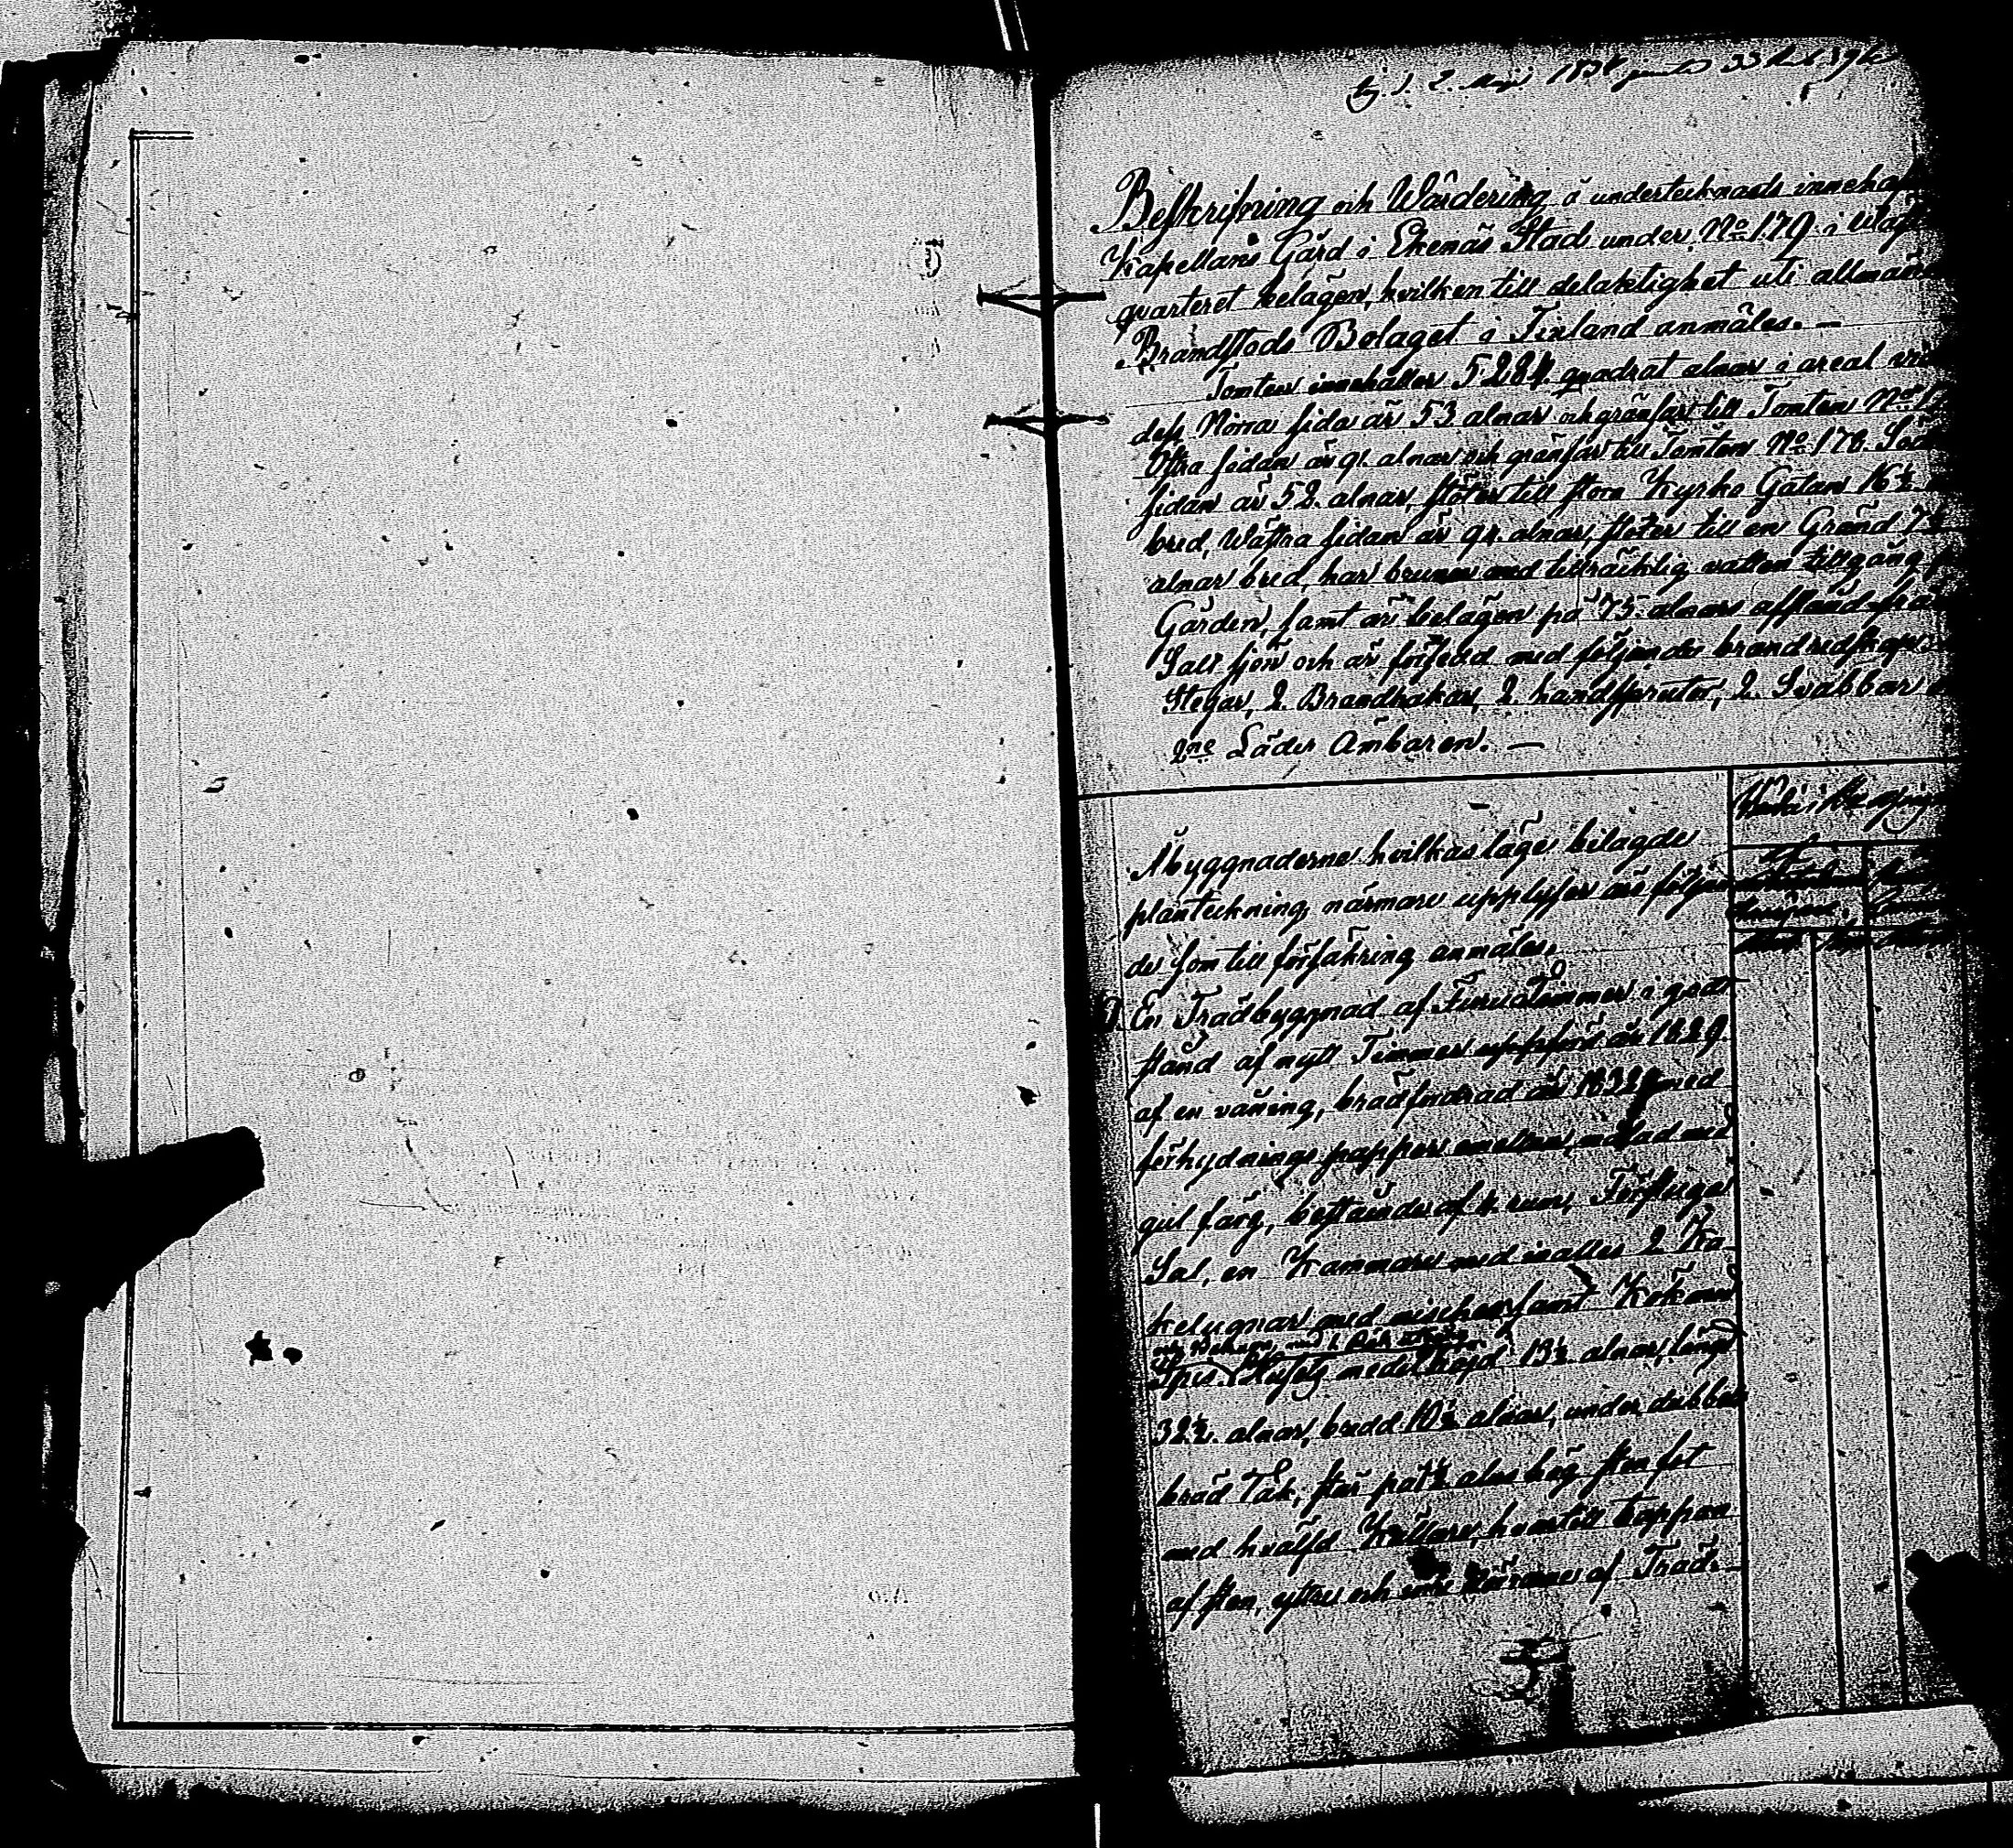 2. Maji 1834
Beskrifning och Wärdering å undertecknads innehaf
Kapellans Gård i Ekenäs Stad under No 179 i
qvarteret belägen, hvilken till delaktighet uti allmänna
Brandstods Bolaget i Finland anmäles. —
Tomten innehåller 5284 quadrat alnar i areal
dess Norra sida är 53 alnar och gränsar till Tomten No
Östra sidan är 91. alnar och gränsar till Tomten No 178. Söd
sidan är 52. alnar, stöter till stora Kyrko Gatan 16½
bred, Wästra sidan är 94. alnar, stöter till en Gränd 7
alnar bred, har brunn med tillräcklig vatten tillgång
Gården, samt är belägen på 75 alnars afstånd från
Salt sjön och är försedd med följande brandredskap:
Stegar, 2. Brandhakar, 2. handsprutor, 2. Svabbar
2ne Läder Ämbaren. —
Åbyggnaderne hvilkas läge bilagde
plantekning närmare upplyser äro följan
de som till försäkring anmäles.
En Trädbyggnad af Furu Timmer i godt
stånd af nytt Timmer uppförd år 1829.
af en våning, brädfodrad år 1832 med
förhydnings papper emellan, målad med
gul färg, bestående af 4 rum, Förstuga
Sal, en Kammare med inalles 2 Ka
kelugnar med nischer samt Kök med
Spis. Husets medelhöjd 13½ alnar, längd
32½. alnar, bredd 10½ alnar, under dubbelt
bräd Tak, står på 1½ aln hög sten fot
med hvälfd Källare, hvartill trappan
af sten, yttre och inre dörrarne af Träd.